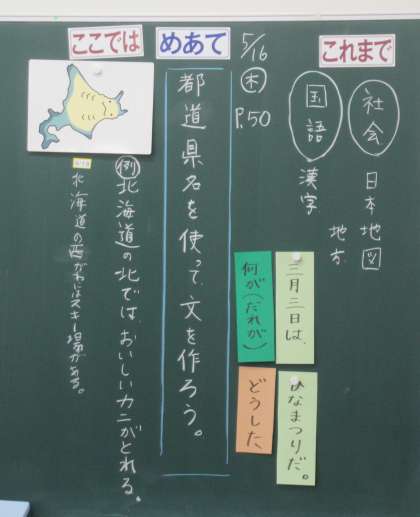 これまで
社会
日本地図
地方
国語
漢字
三月三日は、
ひなまつりだ。
何が(だれが)
どうした
5/16
木
P.50
めあて
都道県名を使って、文を作ろう。
ここでは
例 北海道の北では、おいしいカニがとれる。
北海道の西がわにはスキー場がある。